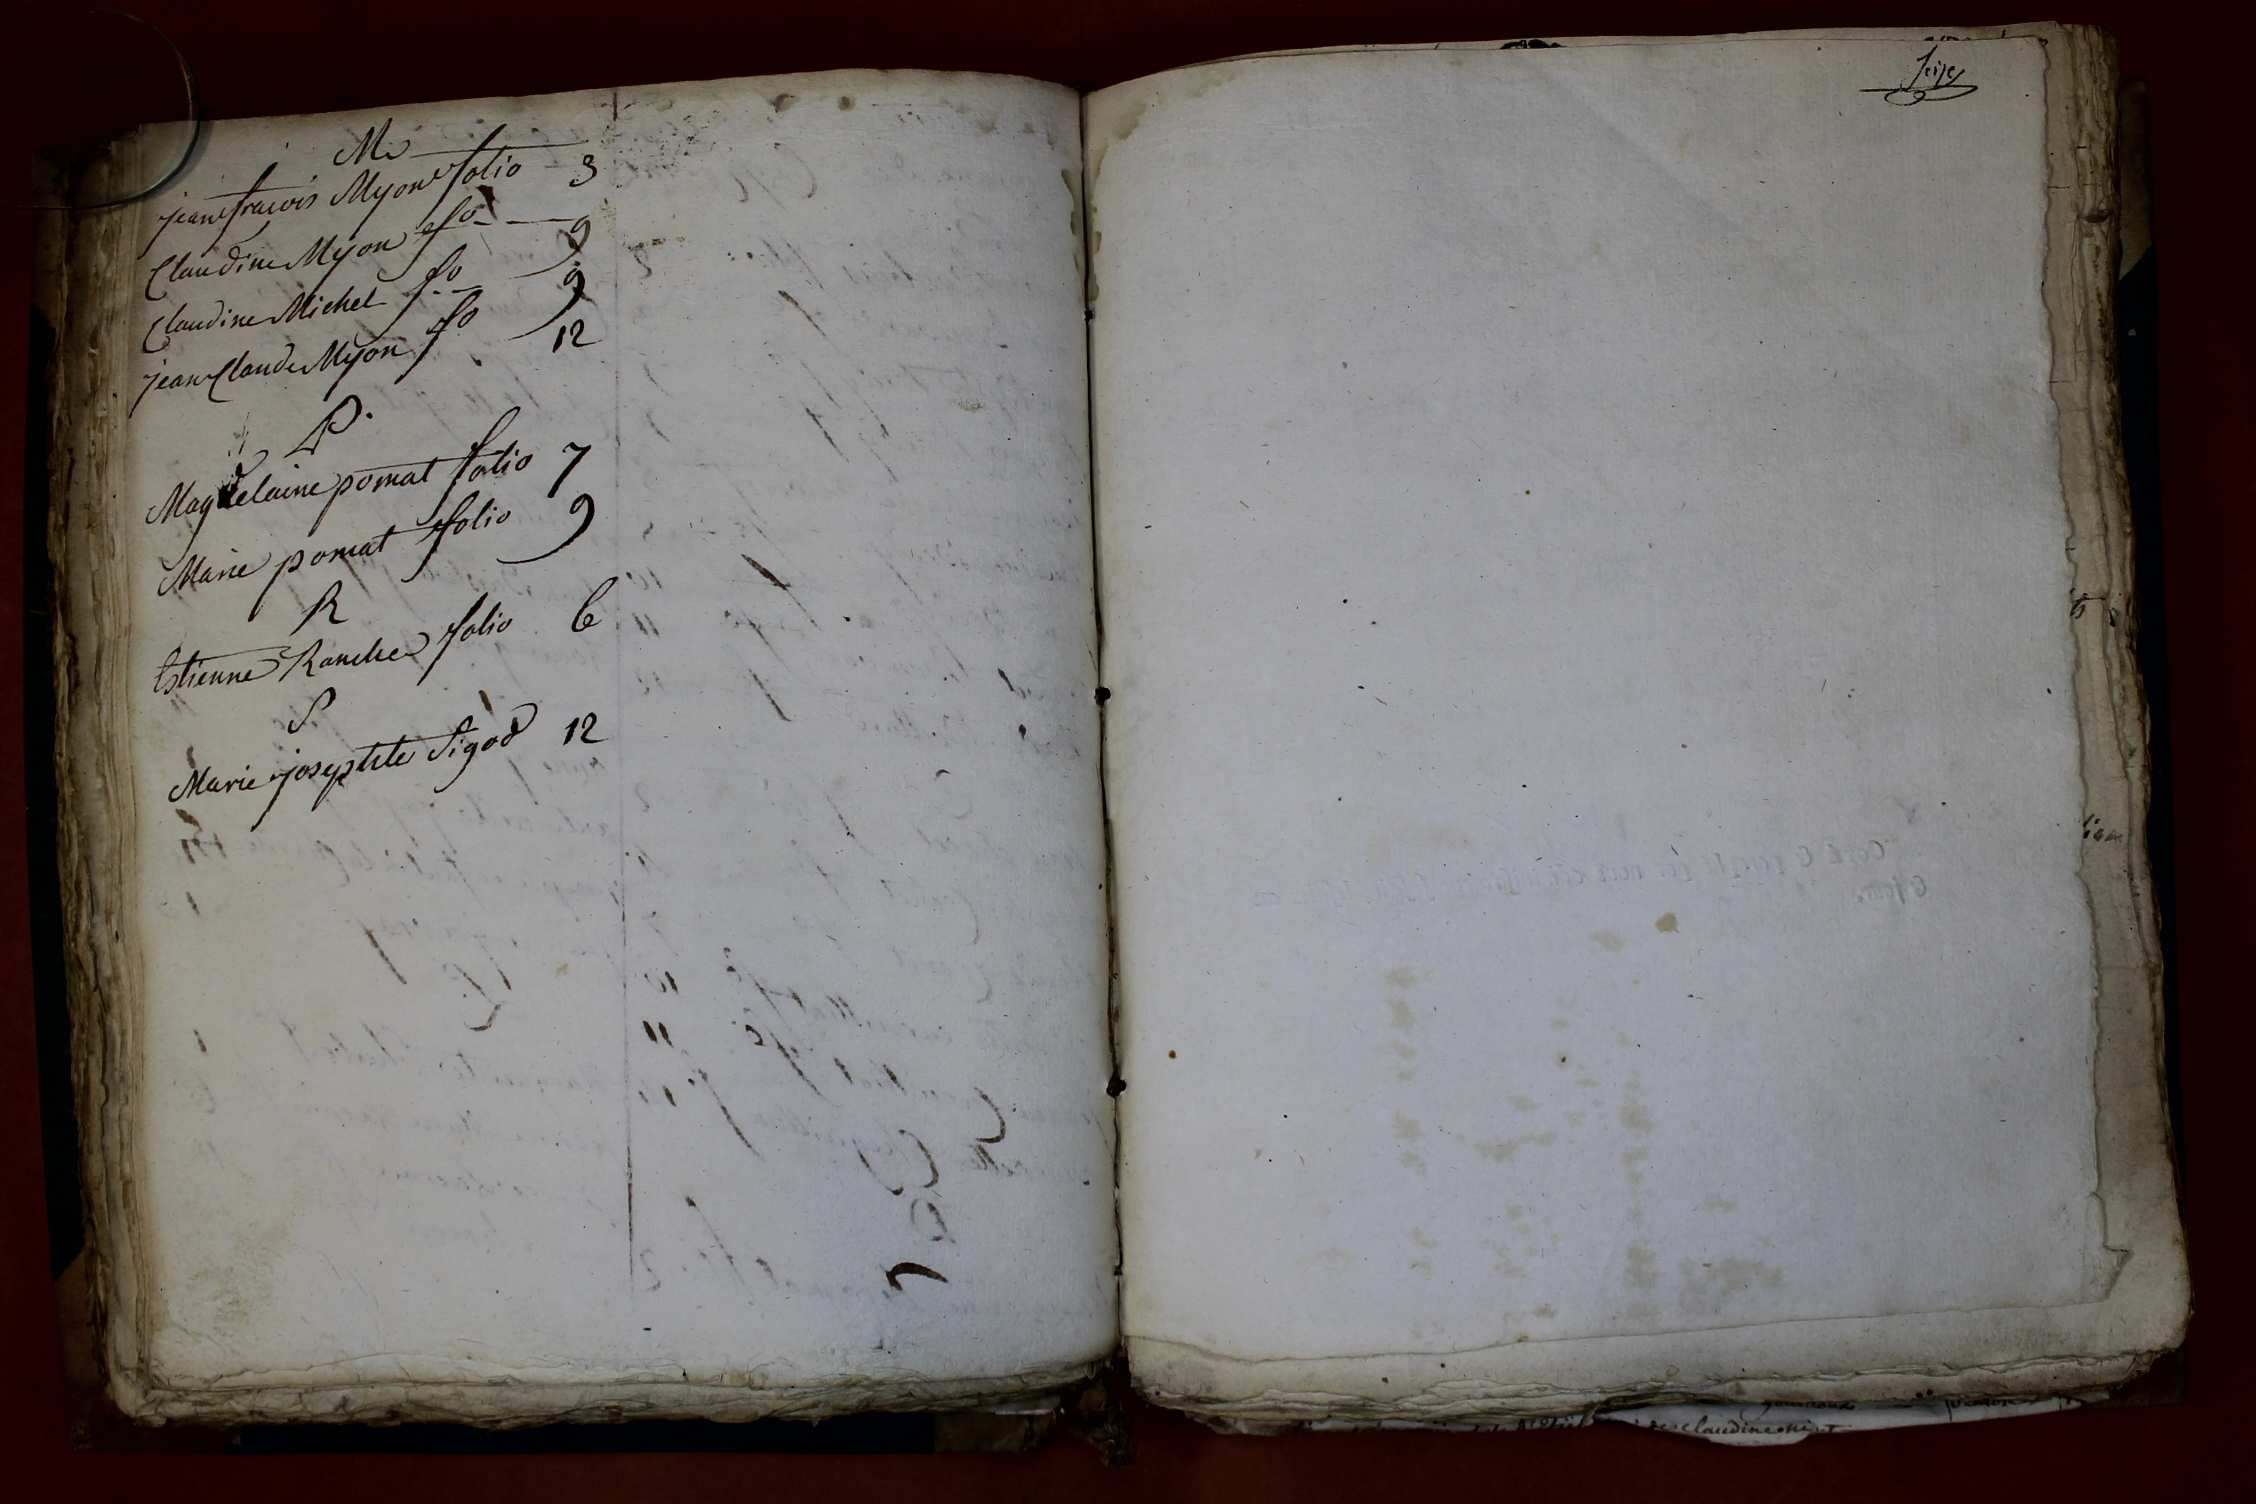 M
jean francois Myon folio 3
Claudine Myon fo 9
Claudine Michel fo 9
jean Claude Myon fo 12
P.
Magdelaine pomat folio 7
Marie pomat folio 9
R
Estienne Ranche folio 6
S
Marie josephte Sigod 12
seize